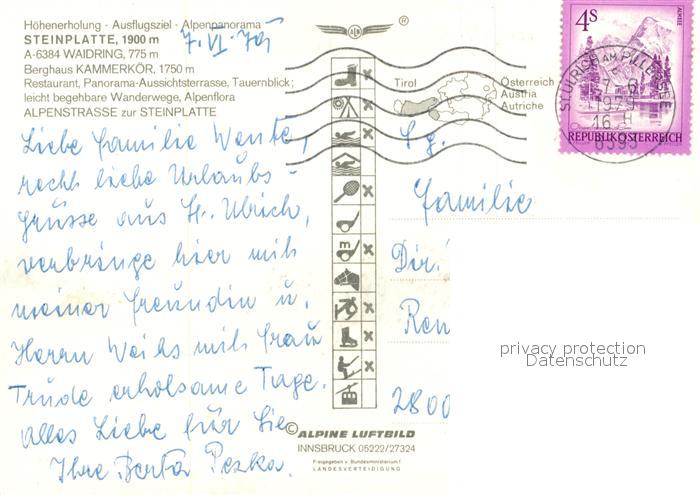 Höhenerholung - Ausflugsziel - Alpenpanorama
STEINPLATTE, 1900 m
7. VI. 79
A-6384 WAIDRING, 775 m
Berghaus KAMMERKÖR, 1750 m
Restaurant, Panorama-Aussichtsterrasse, Tauernblick;
leicht begehbare Wanderwege, Alpenflora
ALPENSTRASSE zur STEINPLATTE
Liebe Familie Wente,
recht liebe Urlaubs-
grüsse aus St. Ulrich,
verbringe hier mit
meiner Freundin u.
Herrn Weihs mit Frau
Trude erholsame Tage.
Alles Liebe für Sie
Ihre Berta Peska.
®
Tirol
Österreich
Austria
Autriche
4S
ALMSEE
REPUBLIK ÖSTERREICH
ST. ULRICH AM PILLERSEE
7. 6.
1979
16 H
6393
Sg.
Familie
Dir.
Ren
2800
privacy protection
Datenschutz
© ALPINE LUFTBILD
INNSBRUCK 05222/27324
Freigegeben v. Bundesministerium f.
LANDESVERTEIDIGUNG